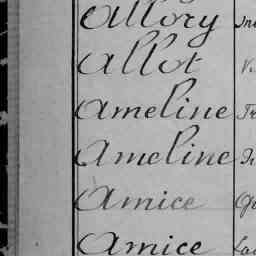 Allory
Allot
Ameline Tr
Ameline
Amice
Amice